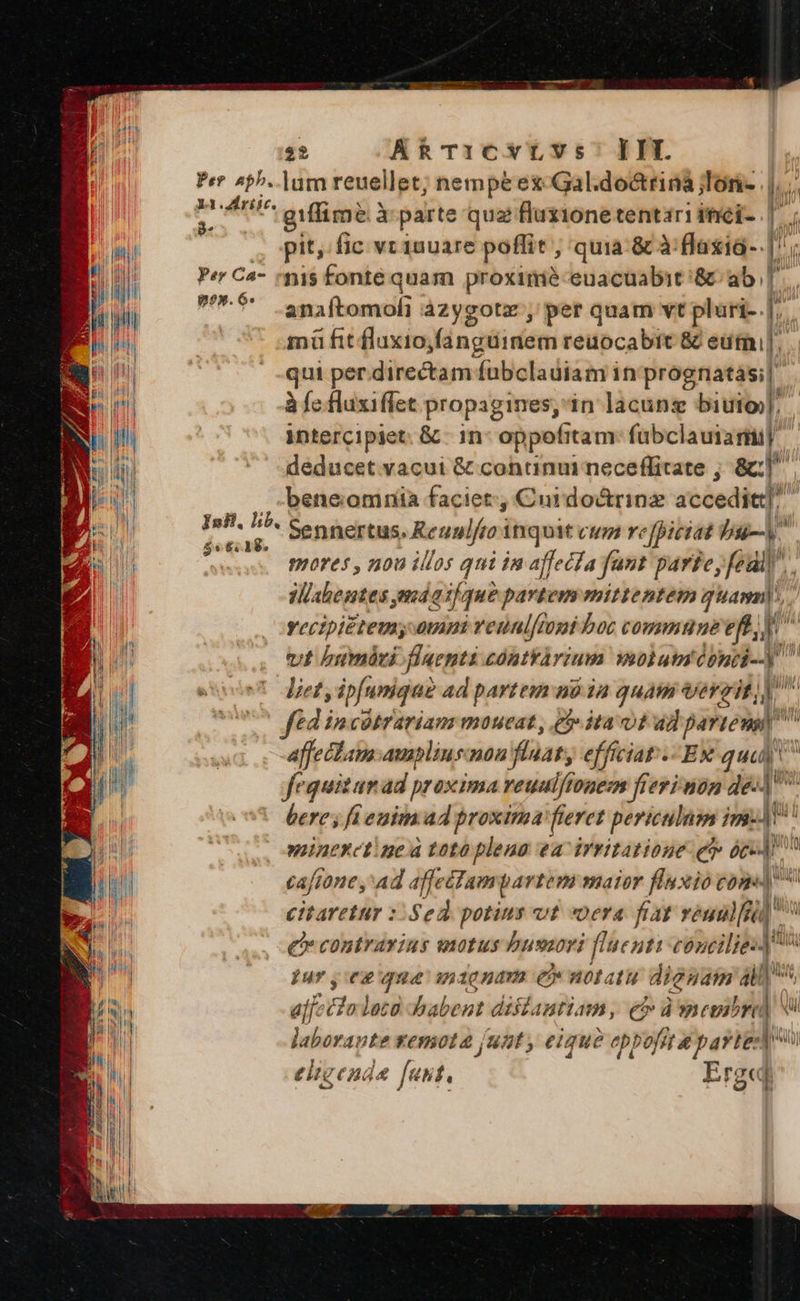 32 ARTICVLVS III.
Per aph. lum reuellet, nempe ex Gal. doctrina, lon-
11. Artic. gissimè à parte quæ fluxione tentari inci-
3.
pit, sic vt iuuare possit, quia & à fluxio-
Per Ca- nis fonte quam proximè euacuabit & ab
non. 6. anastomosi azygotæ, per quam vt pluri-
mū fit fluxio, sanguinem reuocabit & eum
qui per directam subclauiam in prognatas
à se fluxisset propagines, in lacunæ biuio
intercipiet. & in oppositam subclauiam
deducet vacui & continui necessitate, &
bene omnia faciet, Cui doctrinæ accedit
Inst. lib. Sennertus. Reuulsio inquit cum respiciat hu-
5. s. 18.
mores, non illos qui in affecta sunt parte, sed
illabentes, magisque partem mittentem quam
recipiētem, omni reuulsioni hoc commune est,
vt humori fluenti contrarium motum conci-
liet, ipsumque ad partem nō in quam vergit,
sed in cōtrariam moueat, & ita vt ad partem
affectam amplius non fluat, efficiat. Ex quo
sequitur ad proxima reuulsionem fieri non de-
bere, si enim ad proxima fieret periculum im-
mineret ne à toto pleno ea irritatione & oc-
casione, ad affectam partem maior fluxio con-
citaretur: Sed potius vt vera fiat reuulsio
& contrarius motus humori fluenti concilie-
tur, eæ quæ magnam & notatu dignam ab
affecto loco habent distantiam, & à membro
laborante remota sunt, eique opposita partes
eligendæ sunt. Ergo